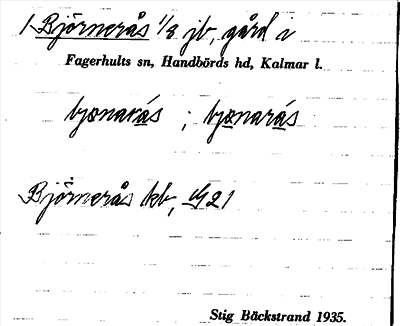 1 Björnerås 1/2 jb, gård i
Fagerhults sn, Handbörds hd, Kalmar l.
bjœnarás ; bjœnarás
Björnerås kb, 1921
Stig Bäckstrand 1935.